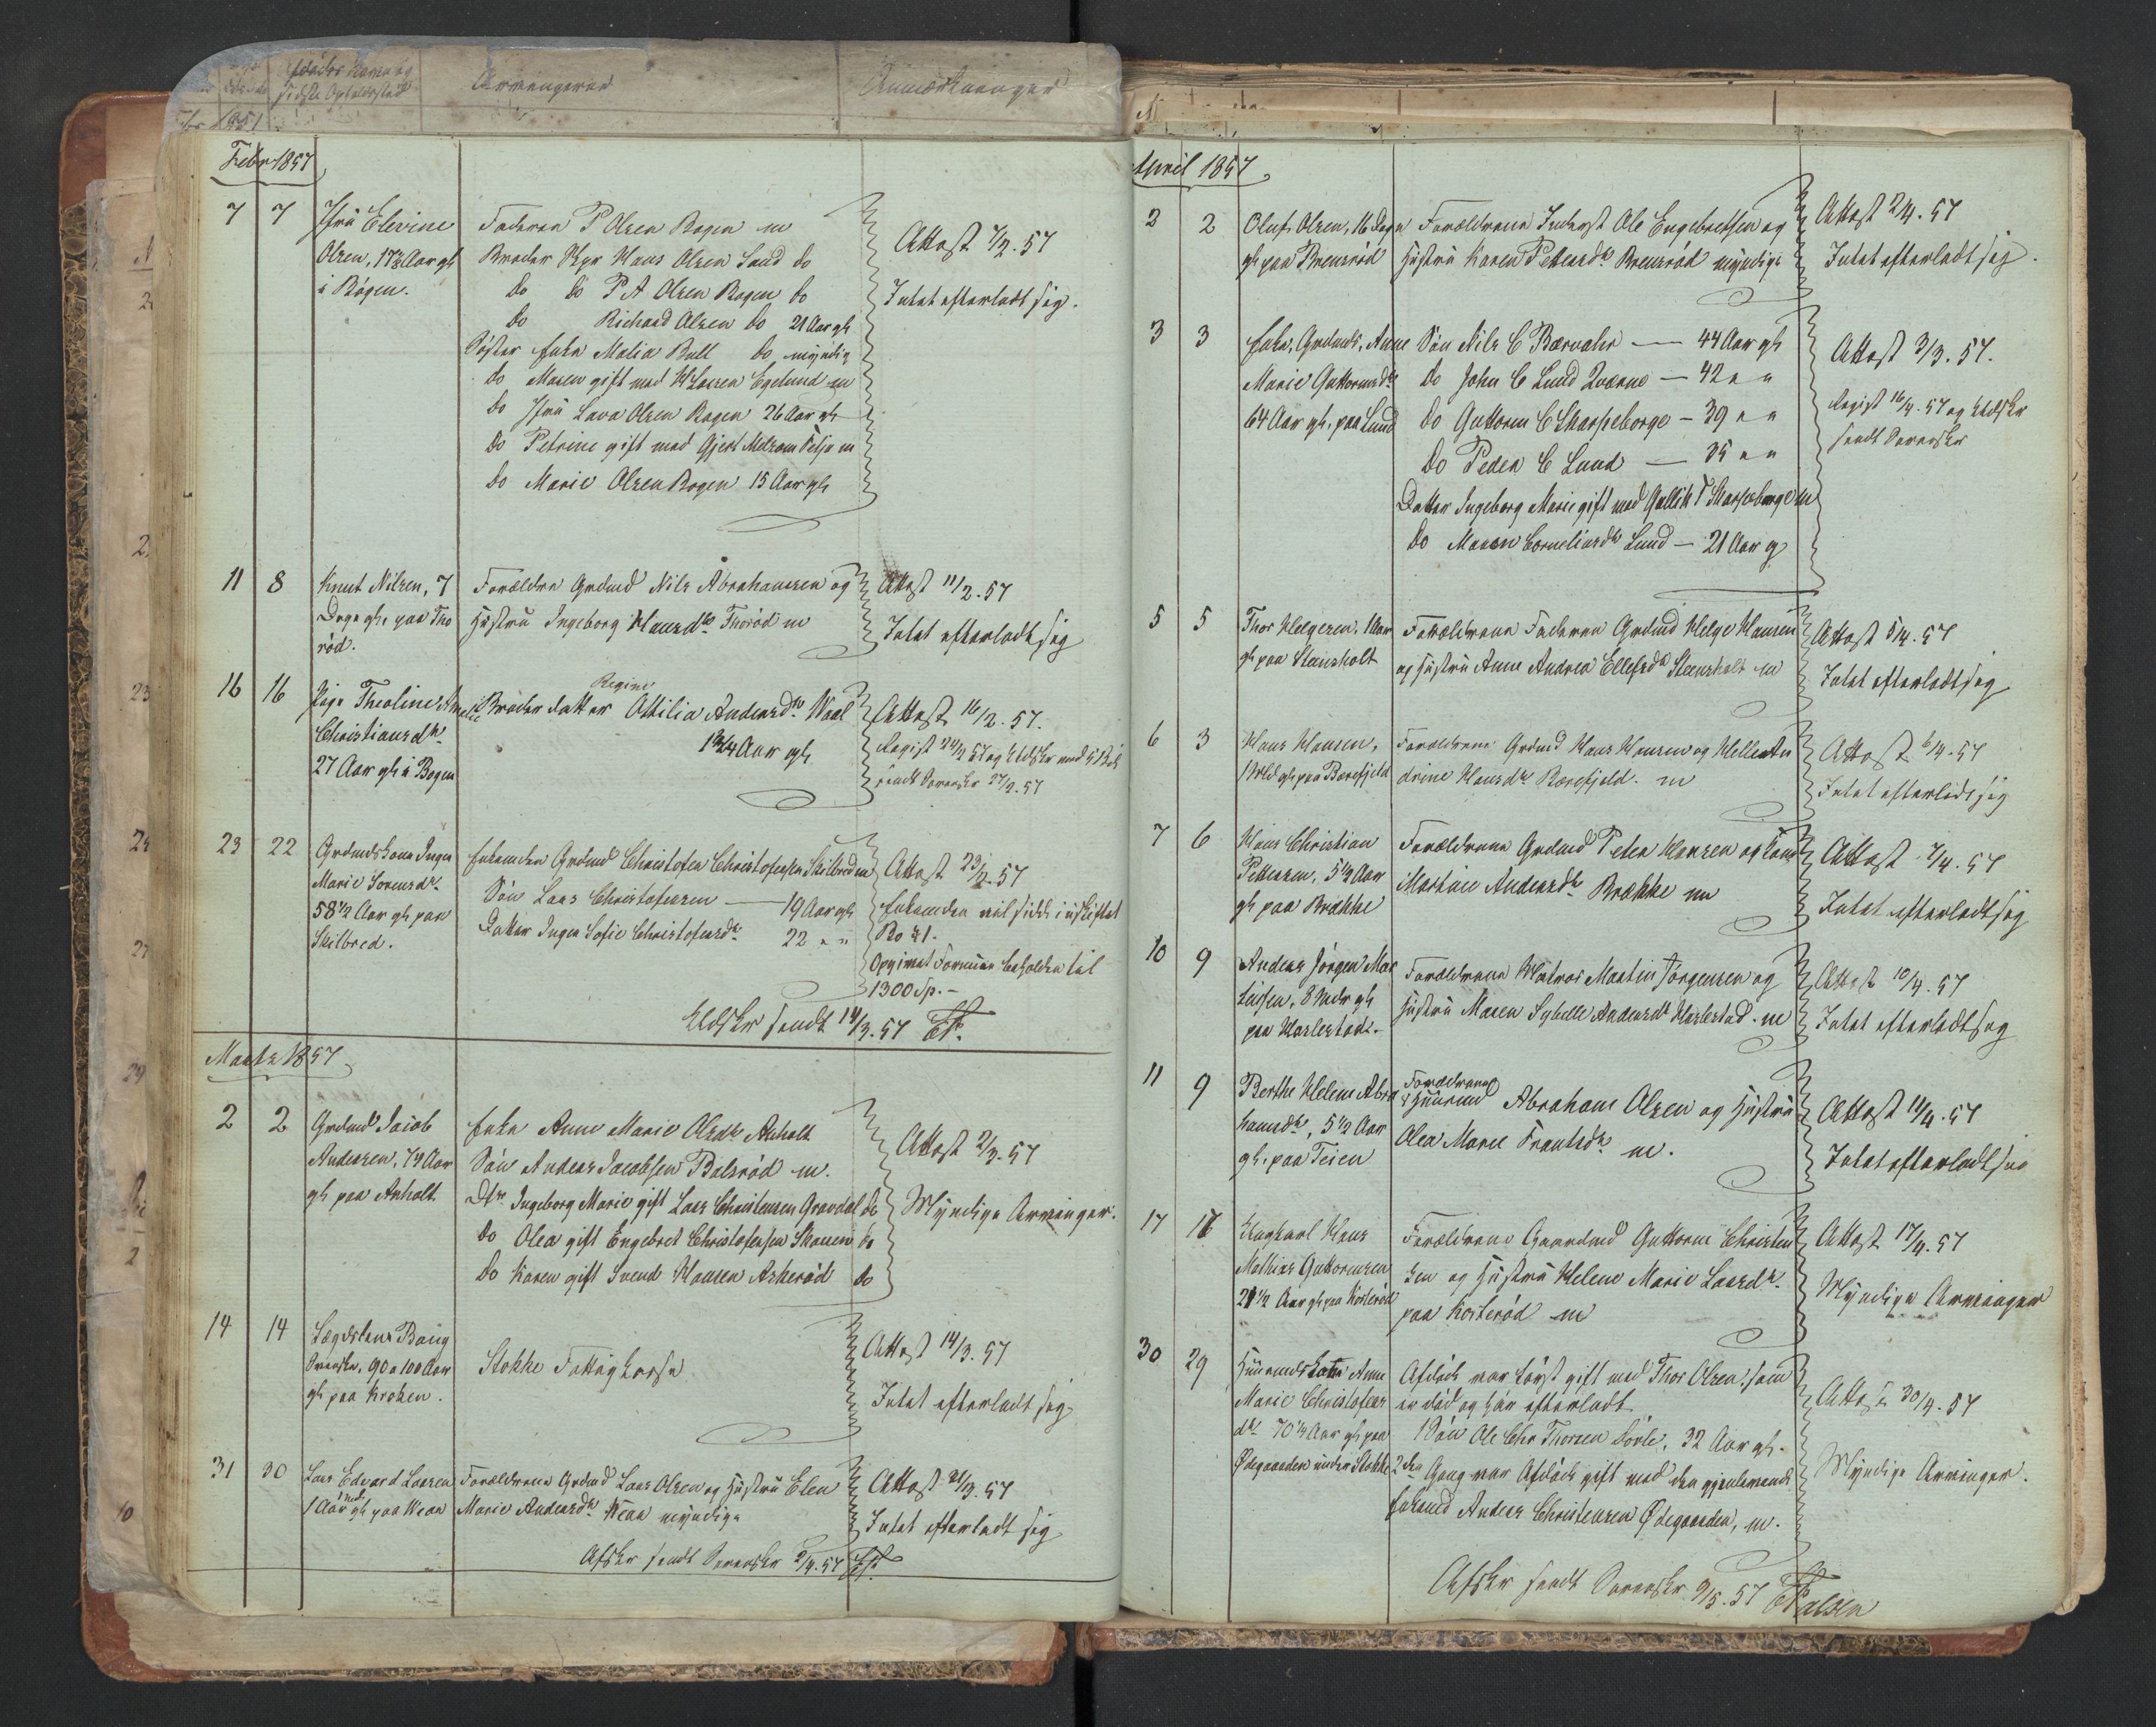 Afdødes Navn og
sidste Opholdssted
Arvingerne
Anmærkninger
Febr 1857
7 7 Jfru Elevine
Olsen, 17¾ Aar gl
i Bogen.
Faderen P Olsen Bogen m
Broder Skpr Hans Olsen Sand do
do do P A Olsen Bogen do
do Richard Olsen do 21 Aar gl
Søster Enke Malia Bull do myndig
do Maren gift med H Larsen Egelund m
do Jfru Lava Olsen Bogen 26 Aar gl
do Petrine gift med Gjert Melsom m
do Marie Olsen Bogen 15 Aar gl
Attest 7/2. 57
Intet efterladt sig.
11 8 Knut Nilsen, 7
Dage gl. paa Tho
rød.
Forældre Grdmd Nils Abrahamsen og
Hustru Ingeborg Hansdtr Thorød m
Attest 11/2. 57
Intet efterladt sig
16 16 Pige Theoline Amalie
Christiansdtr
27 Aar gl i Bogen
Regine
Broder datter Attilia Andersdtr Waal
13/4 Aar gl
Attest 16/2. 57.
sendt Sorenskr 27/2. 57
23 22 Grdmdskone Inger
Marie Sorensdtr
58½ Aar gl paa
Skilbred.
Enkemden Grdmd Christofer Christofersen Skilbred m
Søn Lars Christofersen — 19 Aar gl
Datter Inger Sofie Christofersdtr 22 " "
Attest 23/2. 57
Enkemden vil sidde i uskiftet
Bo
Opgivet Formue Beholden til
1300 Sp. –
Udskr sendt 14/3. 57
Marts 1857
2 2 Grdmd Jacob
Andersen, 79 Aar
gl paa Anholt
Enke Anne Marie Olsdtr Anholt
Søn Anders Jacobsen Bolsrød m.
Dtr Ingeborg Marie gift Lars Christensen Gravdal do
do Olea gift Engebret Christofersen Skouen do
do Karen gift Svend Hansen Askerød do
Attest 2/3. 57
Myndige Arvinger.
14 14 Lægdslem Baug
Svenske, 90 a 100 Aar
gl paa Kroken.
Stokke Fattigkasse
Attest 14/3. 57
Intet efterladt sig
31 30 Lars Edvard Larsen
1 Aar gl paa Wean
Forældrene Grdmd Lars Olsen og Hustru Elen
Marie Andersdtr Wean myndige
Attest 31/3. 57
Intet efterladt sig
Afskr sendt Sorenskr 2/4. 57
April 1857
2 2 Oluf Olsen, 16 Dage
gl paa Brensrød
Forældrene Inderst Ole Engebretsen og
Hustru Karen Pettersdtr Brensrød myndige
Attest 2/4. 57
Intet efterladt sig.
3 3 Enke, Grdmds, Anne
Marie Guttormsdtr
64 Aar gl. paa Lund
Søn Nils C Borvaler — 44 Aar gl
do John C Lund — 42 " "
do Guttorm C Skarpeborge — 39 " "
do Peder C Lund — 35 " "
Datter Ingeborg Marie gift med Gullik T Skarpeborge m
do Maren Corneliusdtr Lund — 21 Aar g
Attest 3/3. 57.
Regist 16/4. 57 og Udskr
sendt Sorenskr
5 5 Thor Helgesen, 1 Aar
gl paa Stensholt
Forældrene Faderen Grdmd Helge Hansen
og Hustru Anne Andrea Ellefsdtr Stensholt m
Attest 5/4. 57
Intet efterladt sig
6 3 Hans Hansen,
gl paa Borefjeld
Forældrene Grdmd Hans Hansen og Helle An
drine Hansdtr Borefjeld. m
Attest 6/4. 57
Intet efterladt sig
7 6 Hans Christian
Pettersen, 5½ Aar
gl paa Brække
Forældrene Grdmd Peter Hansen og Kone
Mathie Andersdtr Brække m
Attest 7/4. 57
Intet efterladt sig
10 9 Anders Jørgen Mar
tinsen, 8 Mdr gl
paa Harlestad.
Forældrene Matros Martin Jørgensen og
Hustru Maren Sybelle Andersdtr Harlestad. m
Attest 10/4. 57
Intet efterladt sig
11 9 Berthe Helene Abra
hamsdtr, 5½ Aar
gl. paa Teien
Forældrene
Huusmd Abraham Olsen og Hustru
Olea Marie Frantsdtr m.
Attest 11/4. 57
Intet efterladt sig
17 16 Ungkarl Hans
Mathias Guttormsen
21½ Aar gl paa Kosterød
Forældrene Gaardmd Guttorm Christen
sen og Hustru Helene Marie Larsdtr
paa Kosterød m
Attest 17/4. 57
Myndige Arvinger
30 29 Huusmdskone Anne
Marie Christofers
dtr 70½ Aar gl paa
Ødegaarden under Stokke
Afdøde var først gift med Thor Olsen, som
er død og har efterladt
1 Søn Ole Chr Thorsen Borle, 32 Aar gl.
2den Gang var Afdøde gift med den gjenlevende
Enkemd Anders Christensen Ødegaarden, m.
Attest 30/4. 57
Myndige Arvinger.
Afskr sendt Sorenskr 9/5. 57 Falsen